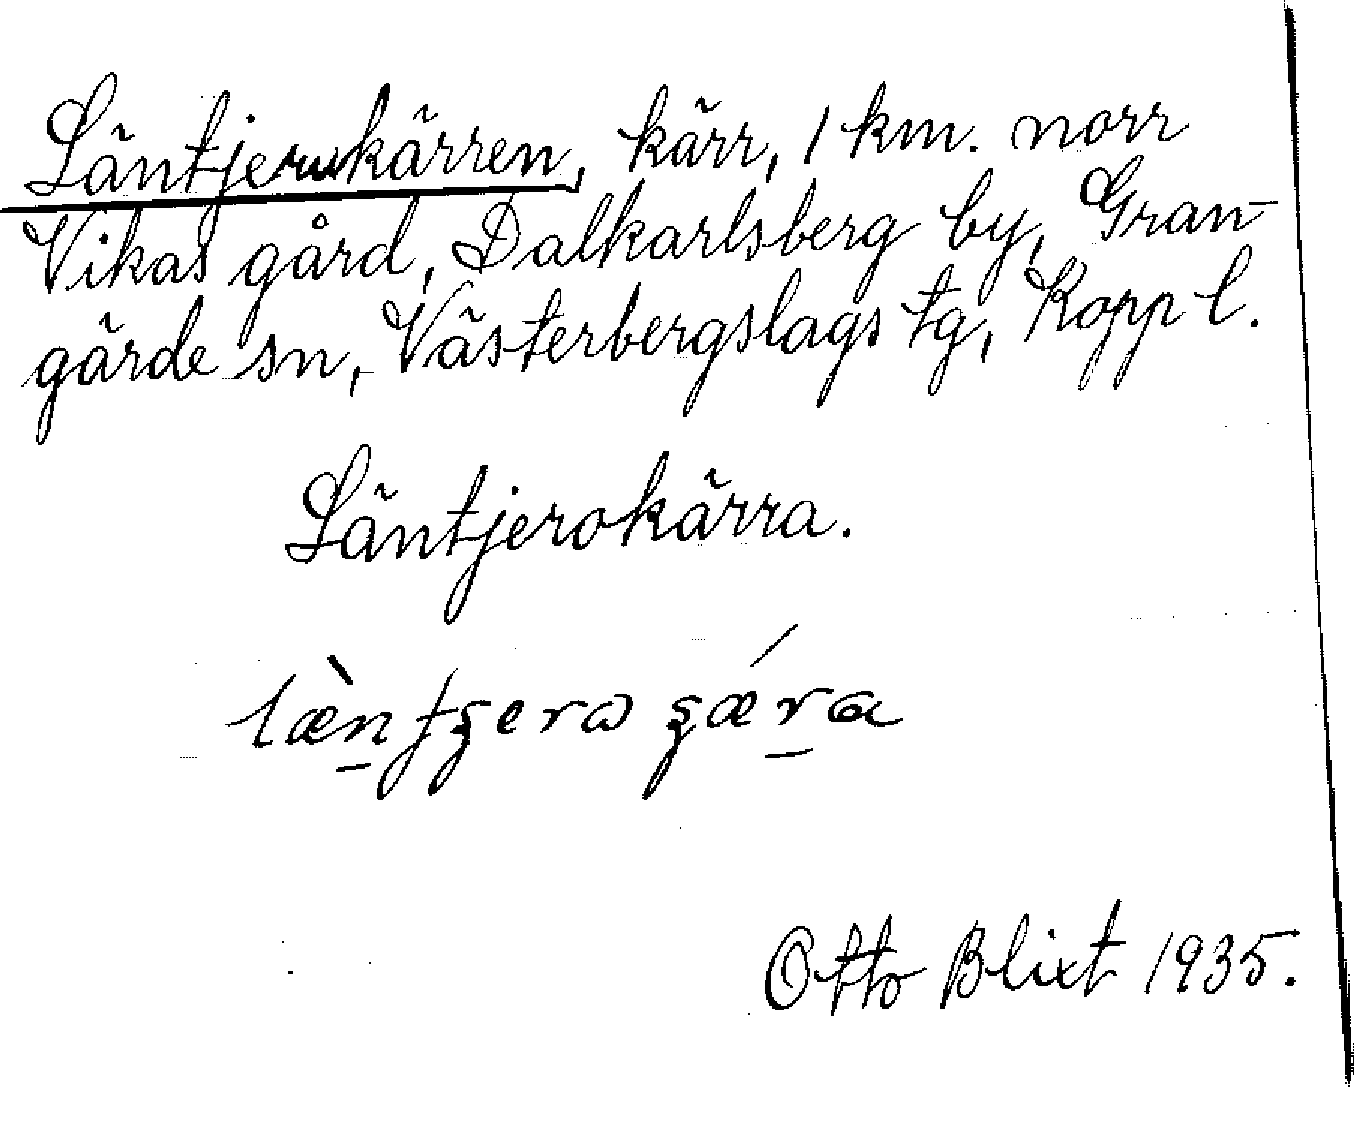 Läntjerukärren, kärr, 1 km. norr
Vikas gård, Dalkarlsberg by, Gran-
gärde sn, Västerbergslags tg, Kopp l.
Läntjerokärra.
Otto Blixt 1935.